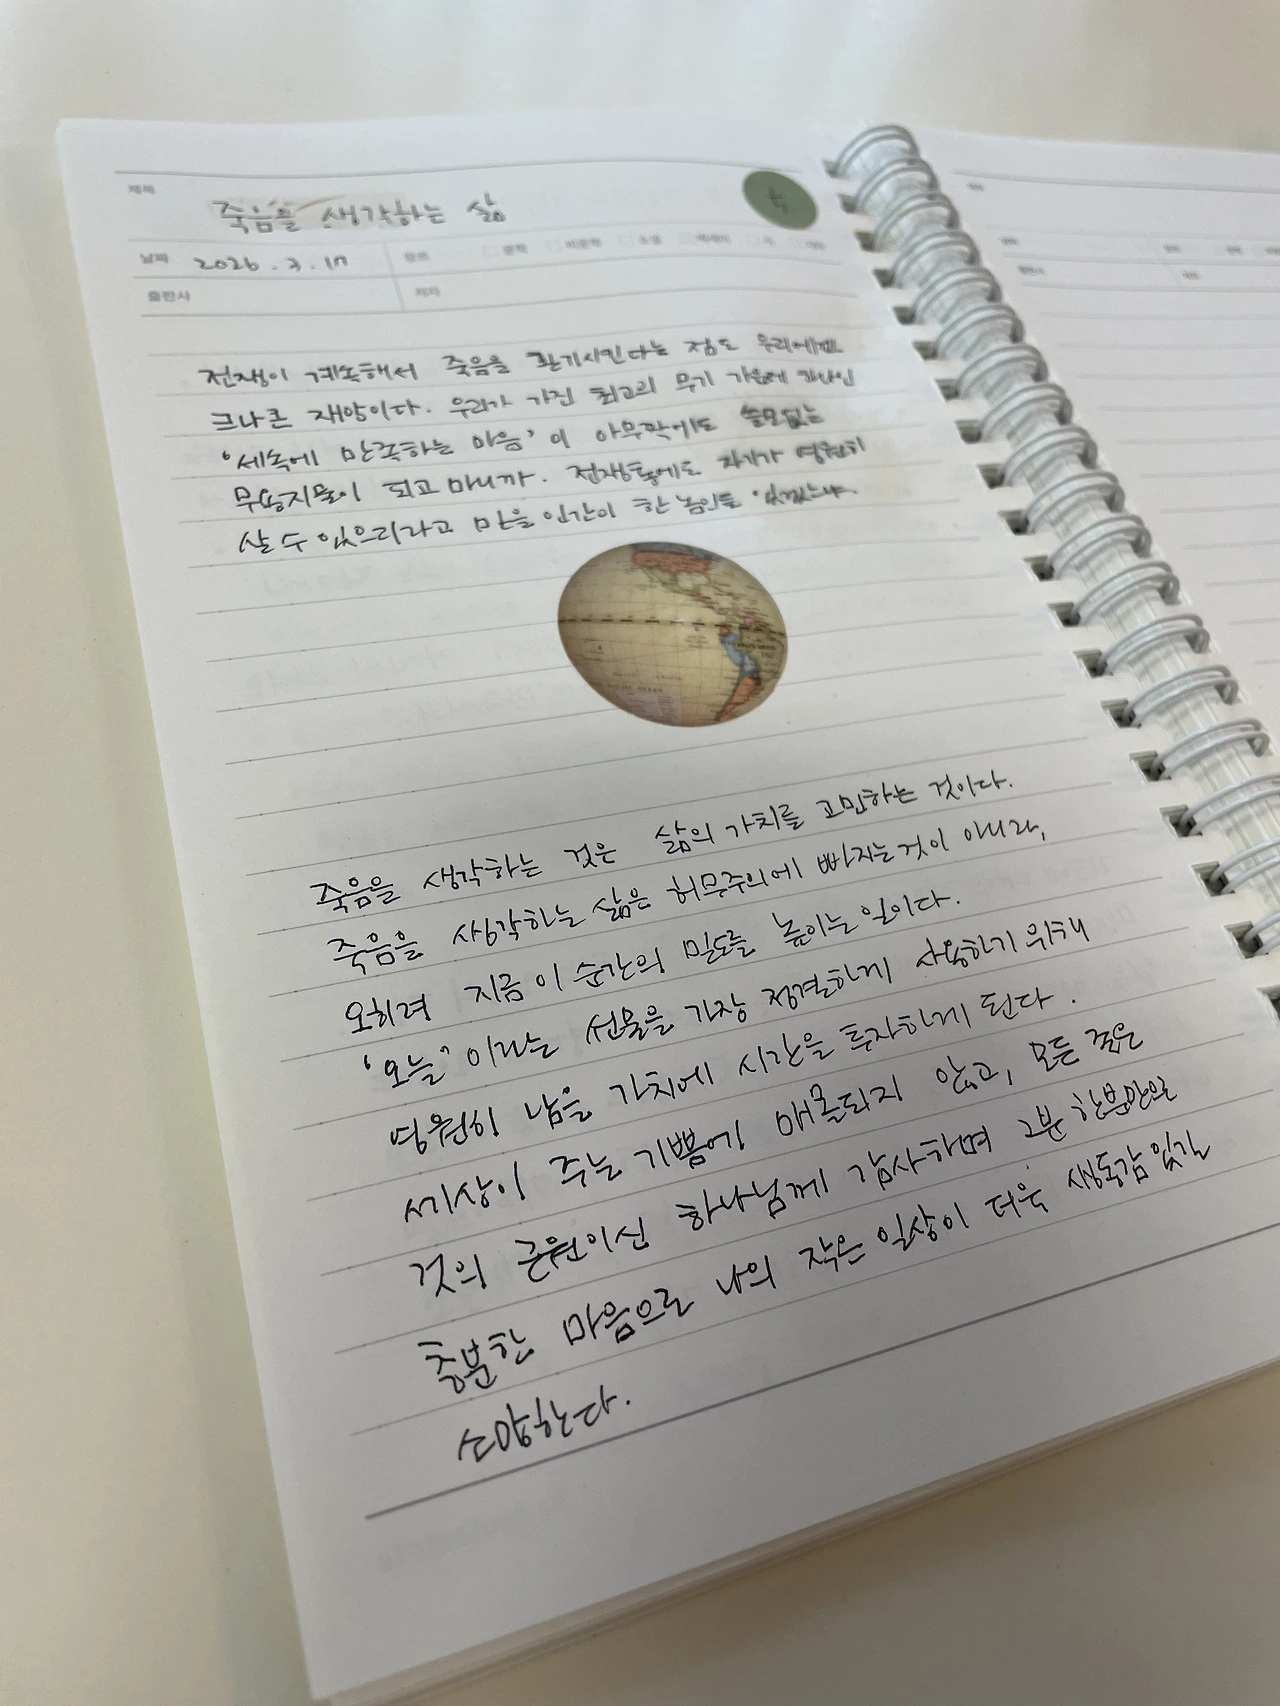 제목
죽음을 생각하는 삶
날짜 2026. 3. 17
출판사 저자
전쟁이 계속해서 죽음을 환기시킨다는 점도 우리에게
크나큰 재앙이다. 우리가 가진 최고의 무기 가운데 하나인
'세속에 만족하는 마음'이 아무짝에도 쓸모없는
무용지물이 되고 마니까. 전쟁통에도 자기가 영원히
살 수 있으리라고 믿을 인간이 한 놈인들 있겠느냐.
죽음을 생각하는 것은 삶의 가치를 고민하는 것이다.
죽음을 생각하는 삶은 허무주의에 빠지는 것이 아니라,
오히려 지금 이 순간의 밀도를 높이는 일이다.
'오늘'이라는 선물을 가장 정결하게 사용하기 위해
영원히 남을 가치에 시간을 투자하게 된다.
세상이 주는 기쁨에 매몰되지 않고, 모든 좋은
것의 근원이신 하나님께 감사하며 그분 한분만으로
충분한 마음으로 나의 작은 일상이 더욱 생동감 있길
소망한다.